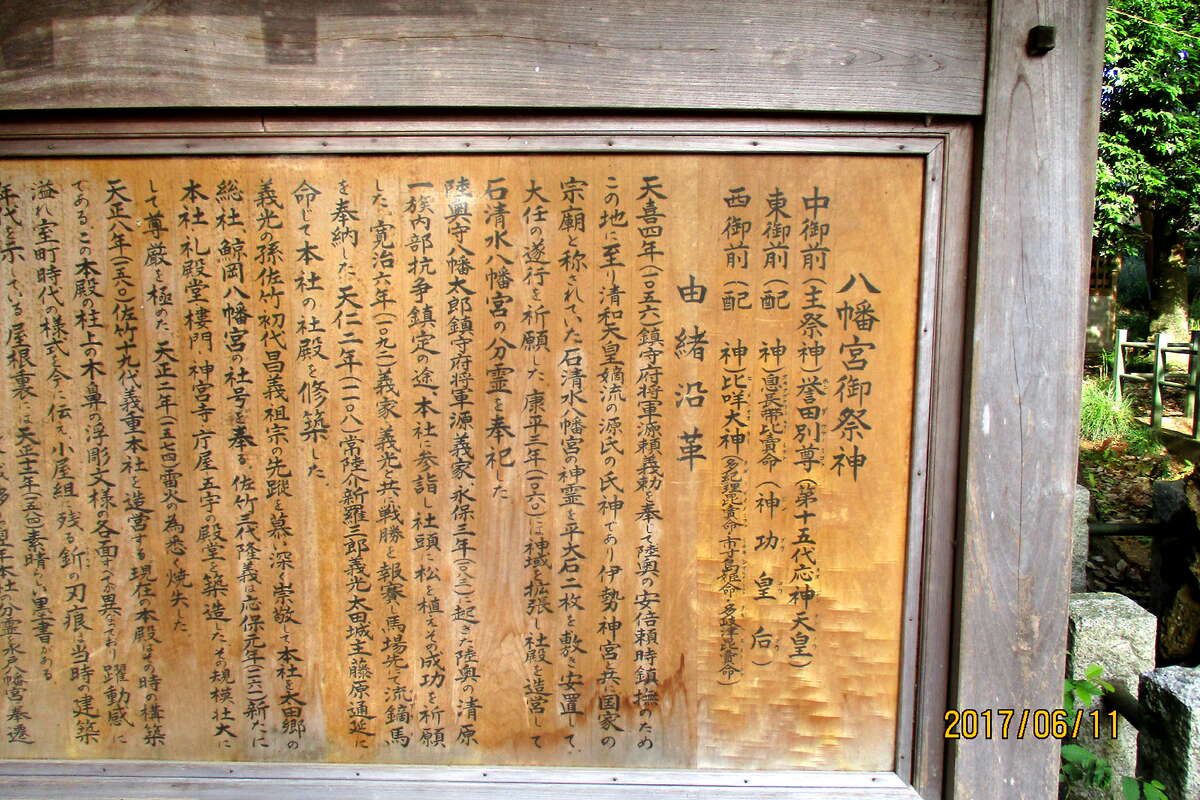 八幡宮御祭神
中御前(主祭神)誉田別尊(第十五代応神天皇)
東御前(配 神)息長帯比賣命(神功皇后)
西御前(配 神)比咩大神(多紀理毘賣命・市寸島姫命・多岐津比賣命)
由緒沿革
天喜四年(一〇五六)鎮守府将軍源頼義勅を奉じて陸奥の安倍頼時鎮撫のため
この地に至り清和天皇嫡流の源氏の氏神であり伊勢神宮と共に国家の
宗廟と称されていた石清水八幡宮の神霊を平大石二枚を敷き安置して、
大任の遂行を祈願した 康平三年(一〇六〇)には神域を拡張し社殿を造営して
石清水八幡宮の分霊を奉祀した
陸奥守八幡太郎鎮守府将軍源義家 永保三年(一〇八三)に起きた陸奥の清原
一族内部抗争鎮定の途、本社に参詣し社頭に松を植えその成功を祈願
した 寛治六年(一〇九二)義家・義光共に戦勝を報賽し馬場先で流鏑馬
を奉納した 天仁二年(一一〇八)常陸介新羅三郎義光太田城主藤原通延に
命じて本社の社殿を修築した
義光の孫佐竹初代昌義祖宗の先蹤を慕い深く崇敬して本社を太田郷の
総社 鯨岡八幡宮の社号を奉る 佐竹三代隆義は応保元年(一一六一)新たに
本社・礼殿堂楼門・神宮寺・庁屋五宇の殿堂を築造した その規模壮大に
して尊厳を極めた 天正二年(一五七四)雷火の為悉く焼失した
天正八年(一五八〇)佐竹十九代義重本社を造営する 現在の本殿はその時の構築
である この本殿の柱上の木鼻の浮彫文様が各面すべが異なっており 躍動感に
溢れ室町時代の様式を今に伝え 小屋組に残る釿の刃痕は当時の建築
年代を示している 屋根裏には天正十一年(一五八三)素晴らしい墨書がある
本社の分霊を水戸八幡宮へ奉遷
2017/06/11